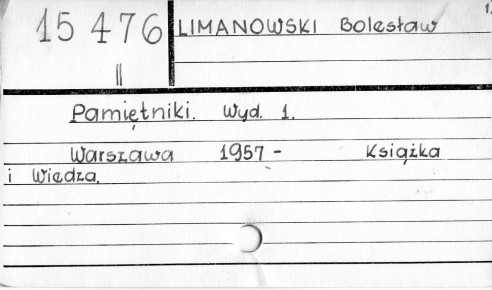 1.
15 476 LIMANOWSKI Bolesław
II
Pamiętniki. Wyd. 1.
Warszawa 1957- Książka
i Wiedza.